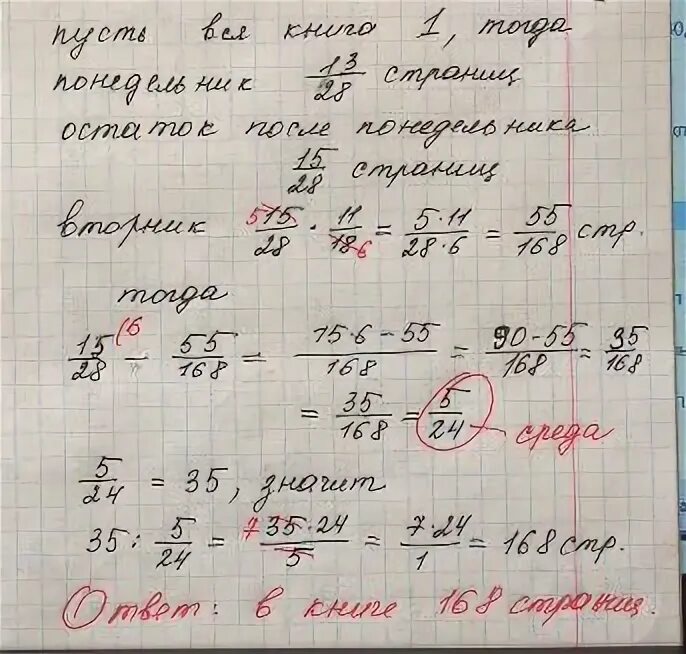 пусть вся книга 1, тогда
понедельник 13/28 страниц
остаток после понедельника
15/28 страниц
вторник 5 15/28 · 11/18 6 = 5·11/28·6 = 55/168 стр.
тогда
15/28 (6 - 55/168 = 15·6-55/168 = 90-55/168 = 35/168
= 35/168 = 5/24 — среда
5/24 = 35, значит
35 : 5/24 = 7 35·24/5 = 7·24/1 = 168 стр.
Ответ: в книге 168 страниц.